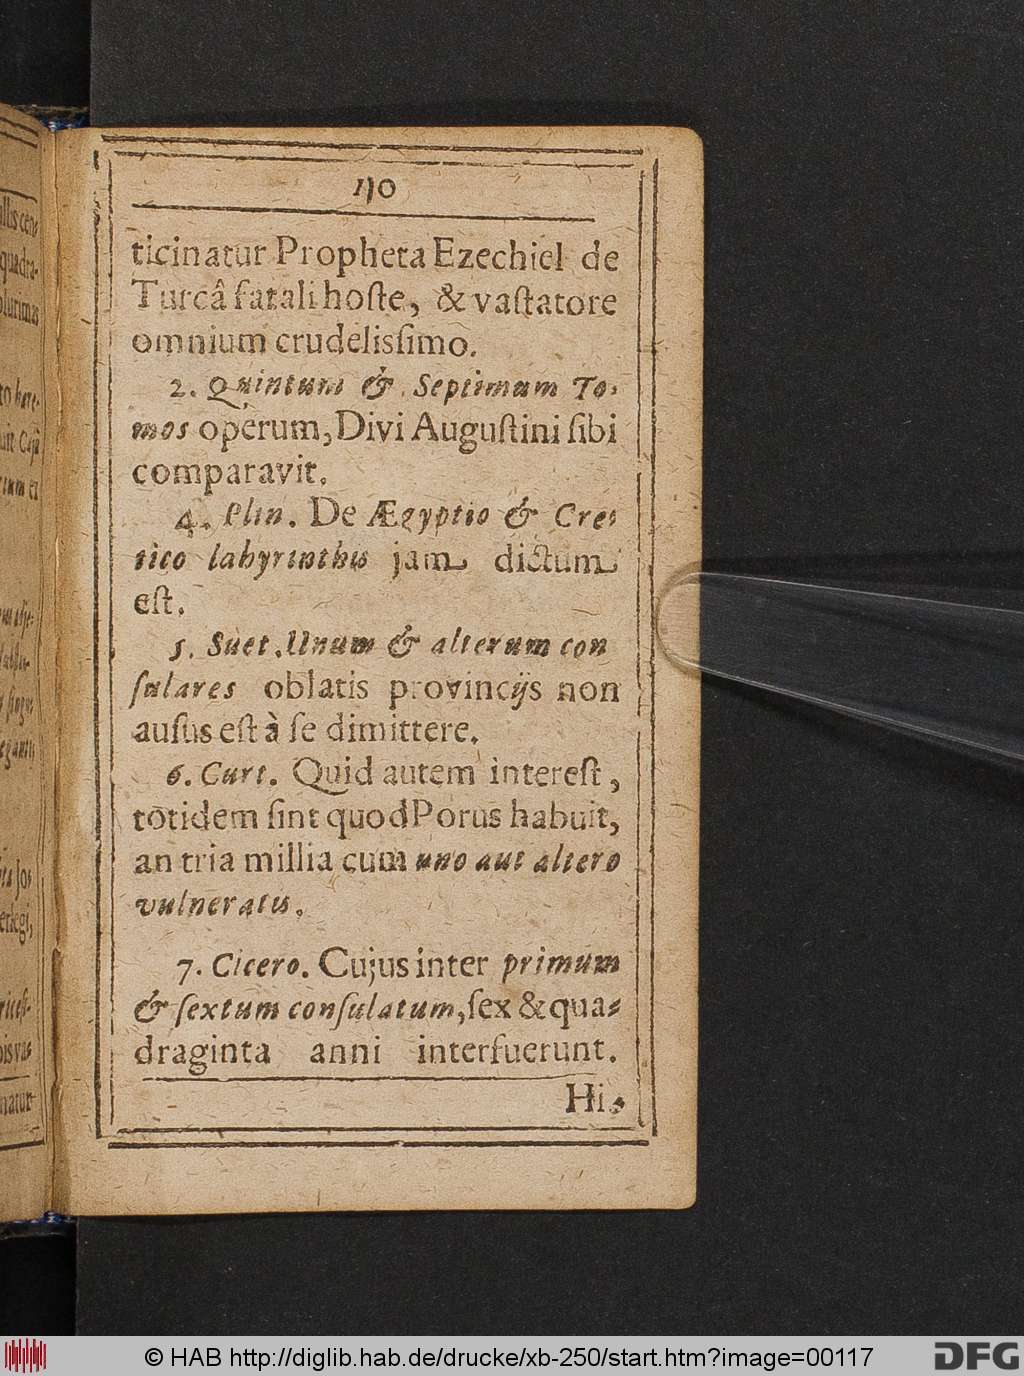 110
ticinatur Propheta Ezechiel de
Turcâ fatali hoſte, & vaſtatore
omnium crudelisſimo.
2. Quintum & Septimum To-
mos operum, Divi Auguſtini ſibi
comparavit.
4. Plin. De Ægyptio & Cre-
tico labyrinthis jam dictum
eſt.
5. Suet. Unum & alterum con
ſulares oblatis provincijs non
auſus eſt à ſe dimittere.
6. Curt. Quid autem intereſt,
totidem ſint quod Porus habuit,
an tria millia cum uno aut altero
vulneratis.
7. Cicero. Cujus inter primum
& ſextum conſulatum, ſex & qua-
draginta anni interfuerunt.
Hi-
© HAB http://diglib.hab.de/drucke/xb-250/start.htm?image=00117
DFG